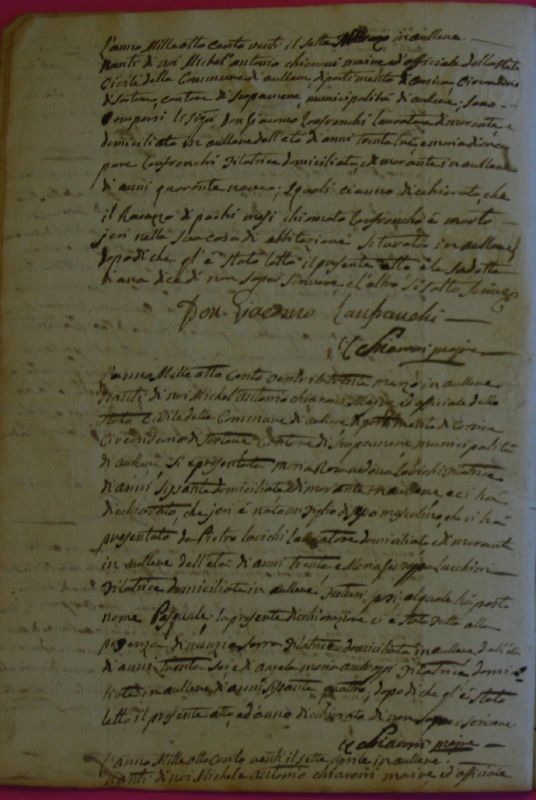 L'anno Mille otto cento venti il sette Marzo in aullene.
nanti di noi Michel'antonio chiaroni maire ed officiale dello stato
Civile della Commune di aullene dipartimento di Corsica Circondario
di Sartene, cantone di Scopamene, municipalità di aullene; sono
comparsi li Sigri Don Giacomo Lanfranchi lavoratore dimorante e
domiciliato in aullene dell'età di anni trenta tre, e maria
pure Lanfranchi Filatrice domiciliata, e dimorante in aullene
di anni quaranta nove; i quali ci anno dichiarato, che
il Ragazzo di pochi mesi chiamato Lanfrancho è morto
jeri nella sua casa di abbitazione situata in aullene,
dopo di che gl'è stato letto il presente atto e la sudetta
diana dice di non saper scrivere, e l'altro si è sotto
Don Giacomo Lanfranchi
Chiaroni maire
L'anno Mille otto cento venti il trenta marzo in aullene
nanti di noi Michel'antonio chiaroni Maire ed officiale dello
stato Civile della Commune di aullene dipartimento di Corsica
Circondario di Sartene Cantone di Scopamene municipalità
di aullene si è presentata maria Lovichi Filatrice
di anni sissanta domiciliata e dimorante in aullene e ci ha
dichiarato, che jeri è nato un figlio di sesso mascolino, che ci hà
presentato da Pietro Lovichi lavoratore domiciliato e dimorante
in aullene dell'età di anni trenta e Maria Lucchini
Filatrice domiciliata in aullene, al quale hà posto
nome Pasquale, la presente dichiarazione ci è stata fatta alla
presenza di nunzia Serra Filatrice domiciliata in aullene dell'età
di anni trenta sei, e di angela maria Filatrice domi-
liata in aullene di anni sissanta quattro, dopo di che gl'è stato
letto il presente atto, ed anno dichiarato di non saper scrivere.
Chiaroni maire
L'anno Mille otto cento venti il sette aprile in aullene.
nanti di noi Michele antonio chiaroni maire, ed officiale